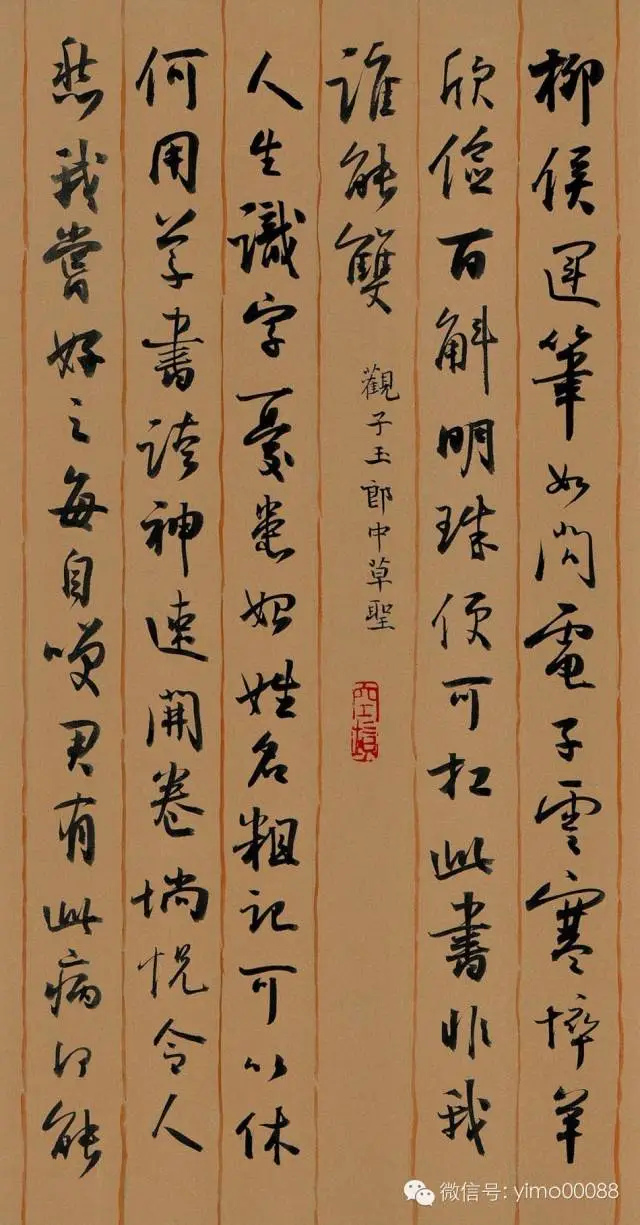 柳侯運筆如閃電子雲寒悴羊
欣儉百斛明珠便可扛此書非我
誰能雙
觀子玉郎中草聖
人生識字憂患始姓名粗記可以休
何用草書誇神速開卷惝怳令人
愁我嘗好之每自咲君有此病何能
微信号: yimo00088